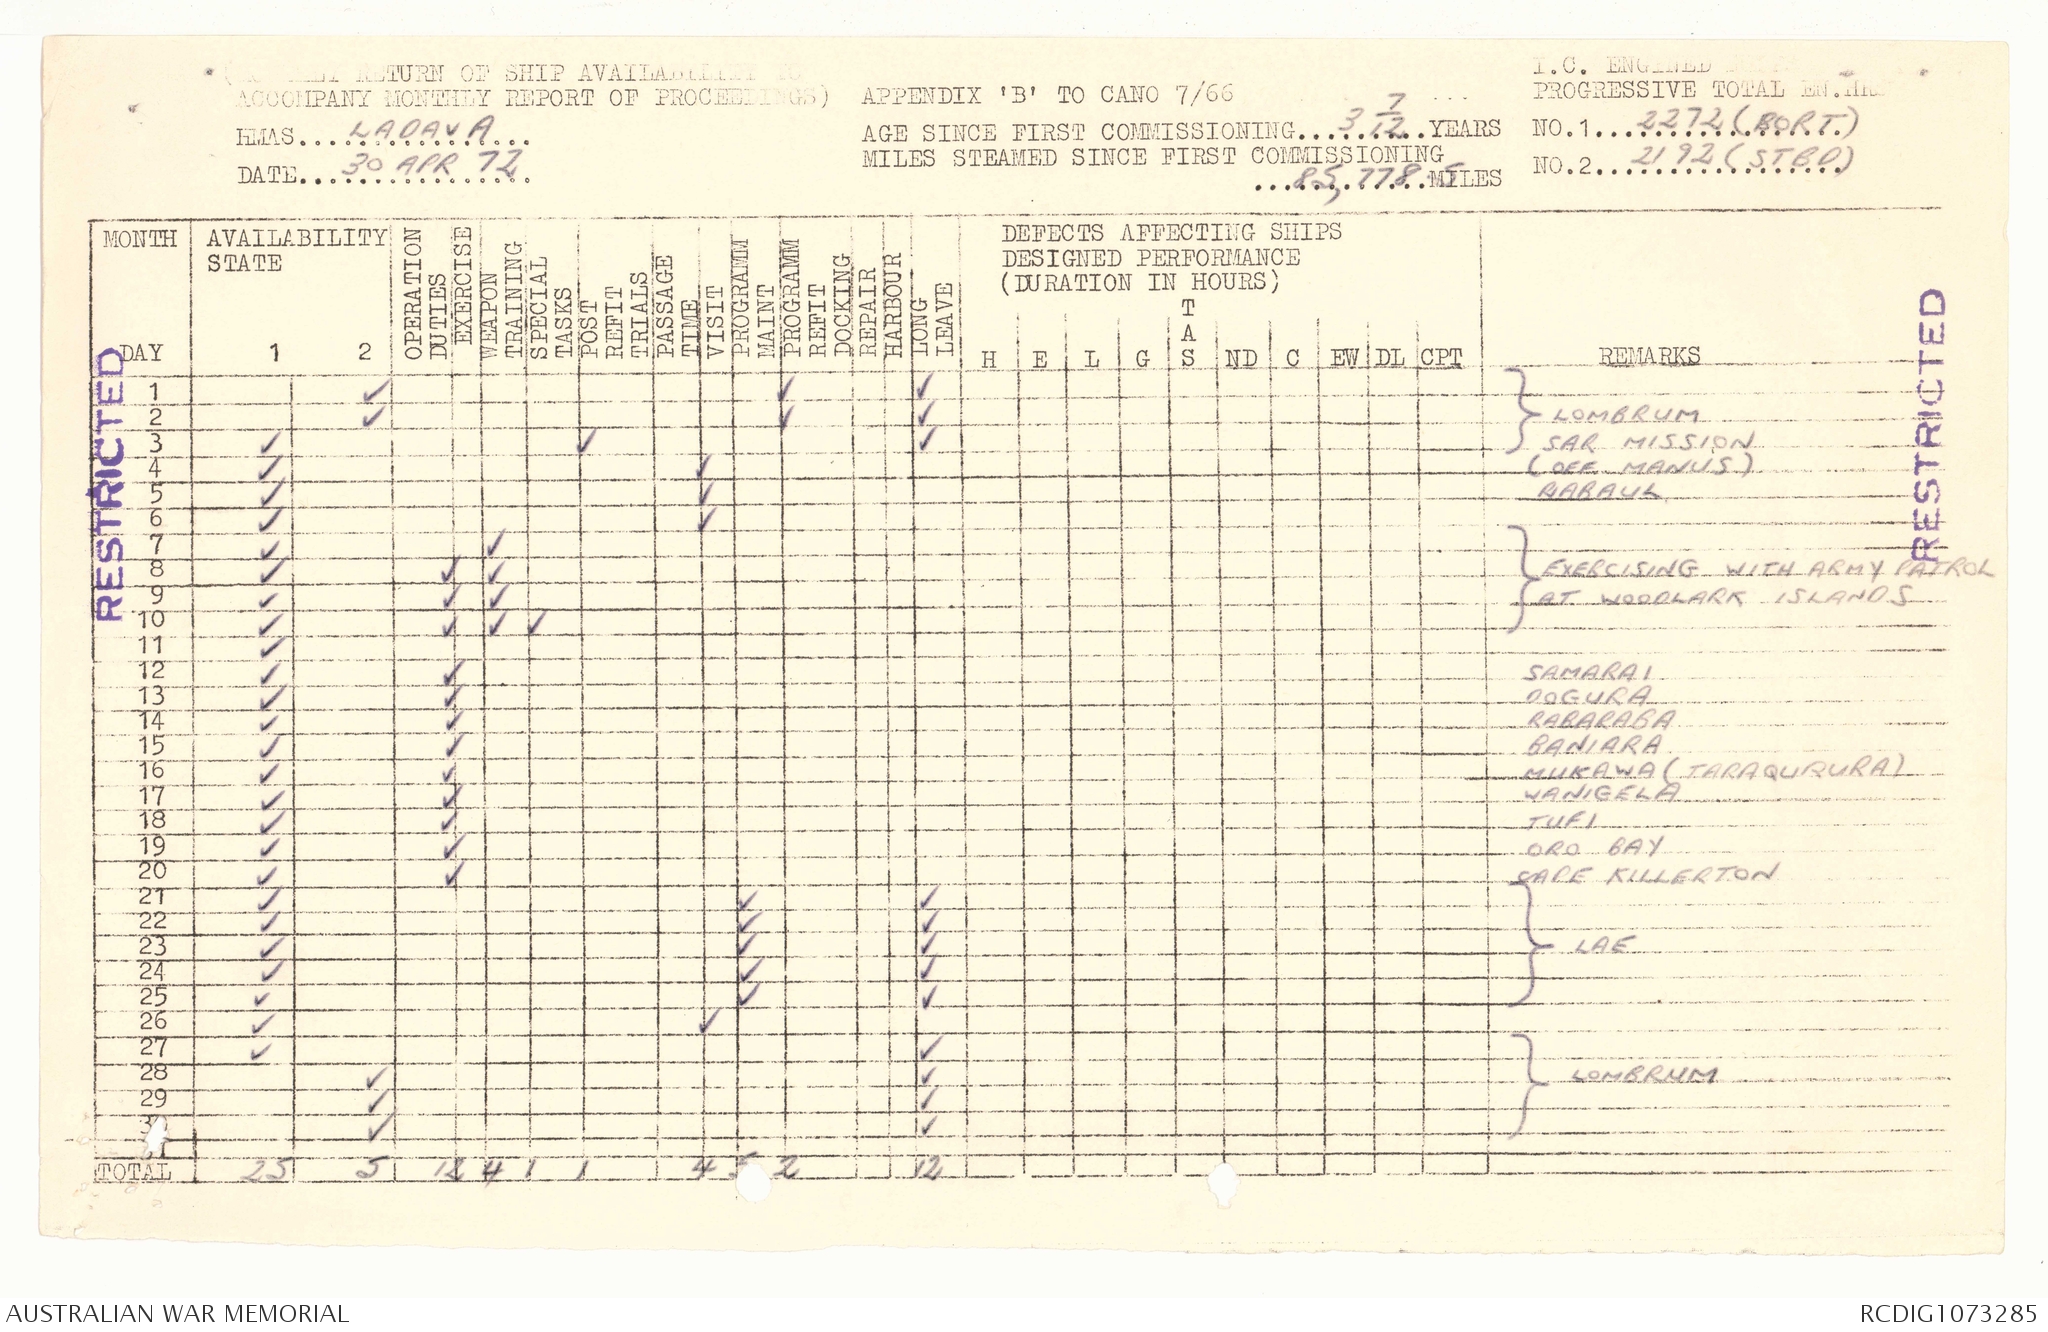 RETURN OF SHIP AVAILABILITY TO
ACCOMPANY MONTHLY REPORT OF PROCEEDINGS)
APPENDIX 'B' TO CANO 7/66
I.C. ENGINED
PROGRESSIVE TOTAL EN.HR
HMAS....LADAVA....
DATE....30 APR 72....
AGE SINCE FIRST COMMISSIONING....3 7/12....YEARS
MILES STEAMED SINCE FIRST COMMISSIONING
....85,778.5....MILES
NO.1....2272 (PORT)
NO.2....2192 (STBD)
RESTRICTED
RESTRICTED
MONTH
DAY
AVAILABILITY STATE
1 2
OPERATION DUTIES
EXERCISE
WEAPON TRAINING
SPECIAL TASKS
POST REFIT TRIALS
PASSAGE TIME
VISIT
PROGRAMM MAINT
PROGRAMM REFIT
DOCKING
REPAIR
HARBOUR
LONG LEAVE
DEFECTS AFFECTING SHIPS
DESIGNED PERFORMANCE
(DURATION IN HOURS)
H E L G TAS ND C EW DL CPT
REMARKS
1 ✓ ✓ ✓
2 ✓ ✓ ✓ LOMBRUM
3 ✓ ✓ ✓ SAR MISSION
4 ✓ ✓ (OFF MANUS)
5 ✓ ✓ RABAUL
6 ✓ ✓
7 ✓ ✓
8 ✓ ✓ ✓ EXERCISING WITH ARMY PATROL
9 ✓ ✓ ✓ AT WOODLARK ISLANDS
10 ✓ ✓ ✓ ✓
11 ✓
12 ✓ ✓ SAMARAI
13 ✓ ✓ DOGURA
14 ✓ ✓ RABARABA
15 ✓ ✓ BANIARA
16 ✓ ✓ MUKAWA (TARAQURURA)
17 ✓ ✓ WANIGELA
18 ✓ ✓ TUFI
19 ✓ ✓ ORO BAY
20 ✓ ✓ CAPE KILLERTON
21 ✓ ✓ ✓
22 ✓ ✓ ✓
23 ✓ ✓ ✓ LAE
24 ✓ ✓ ✓
25 ✓ ✓ ✓
26 ✓ ✓
27 ✓ ✓
28 ✓ ✓ LOMBRUM
29 ✓ ✓
✓ ✓
TOTAL 25 5 12 4 1 1 4 5 2 12
AUSTRALIAN WAR MEMORIAL
RCDIG1073285